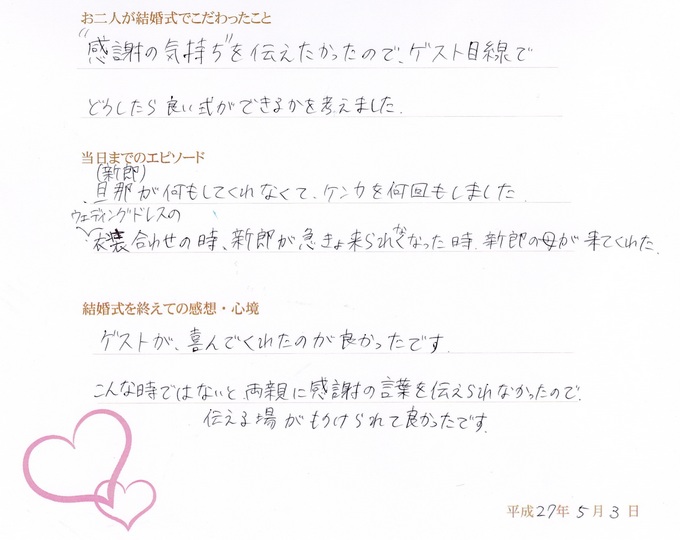 お二人が結婚式でこだわったこと
"感謝の気持ち"を伝えたかったので、ゲスト目線で
どうしたら良い式ができるかを考えました.
当日までのエピソード
(新郎)
旦那が何もしてくれなくて、ケンカを何回もしました.
ウェディングドレスの
衣装合わせの時、新郎が急きょ来られなくなった時.新郎の母が来てくれた.
結婚式を終えての感想・心境
ゲストが、喜んでくれたのが良かったです.
こんな時ではないと両親に感謝の言葉を伝えられなかったので.
伝える場がもうけられて良かったです.
平成27年5月3日